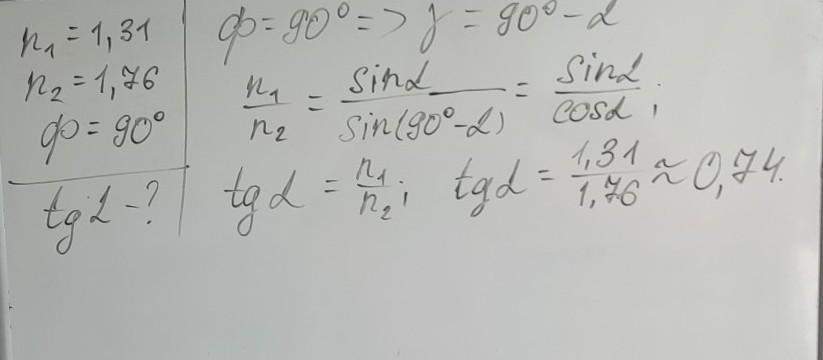 n₁ = 1,31
n₂ = 1,76
φ = 90°
tg α - ?
φ = 90° => γ = 90° - α
n₁/n₂ = sinα/sin(90°-α) = sinα/cosα ;
tg α = n₁/n₂; tg α = 1,31/1,76 ≈ 0,74.